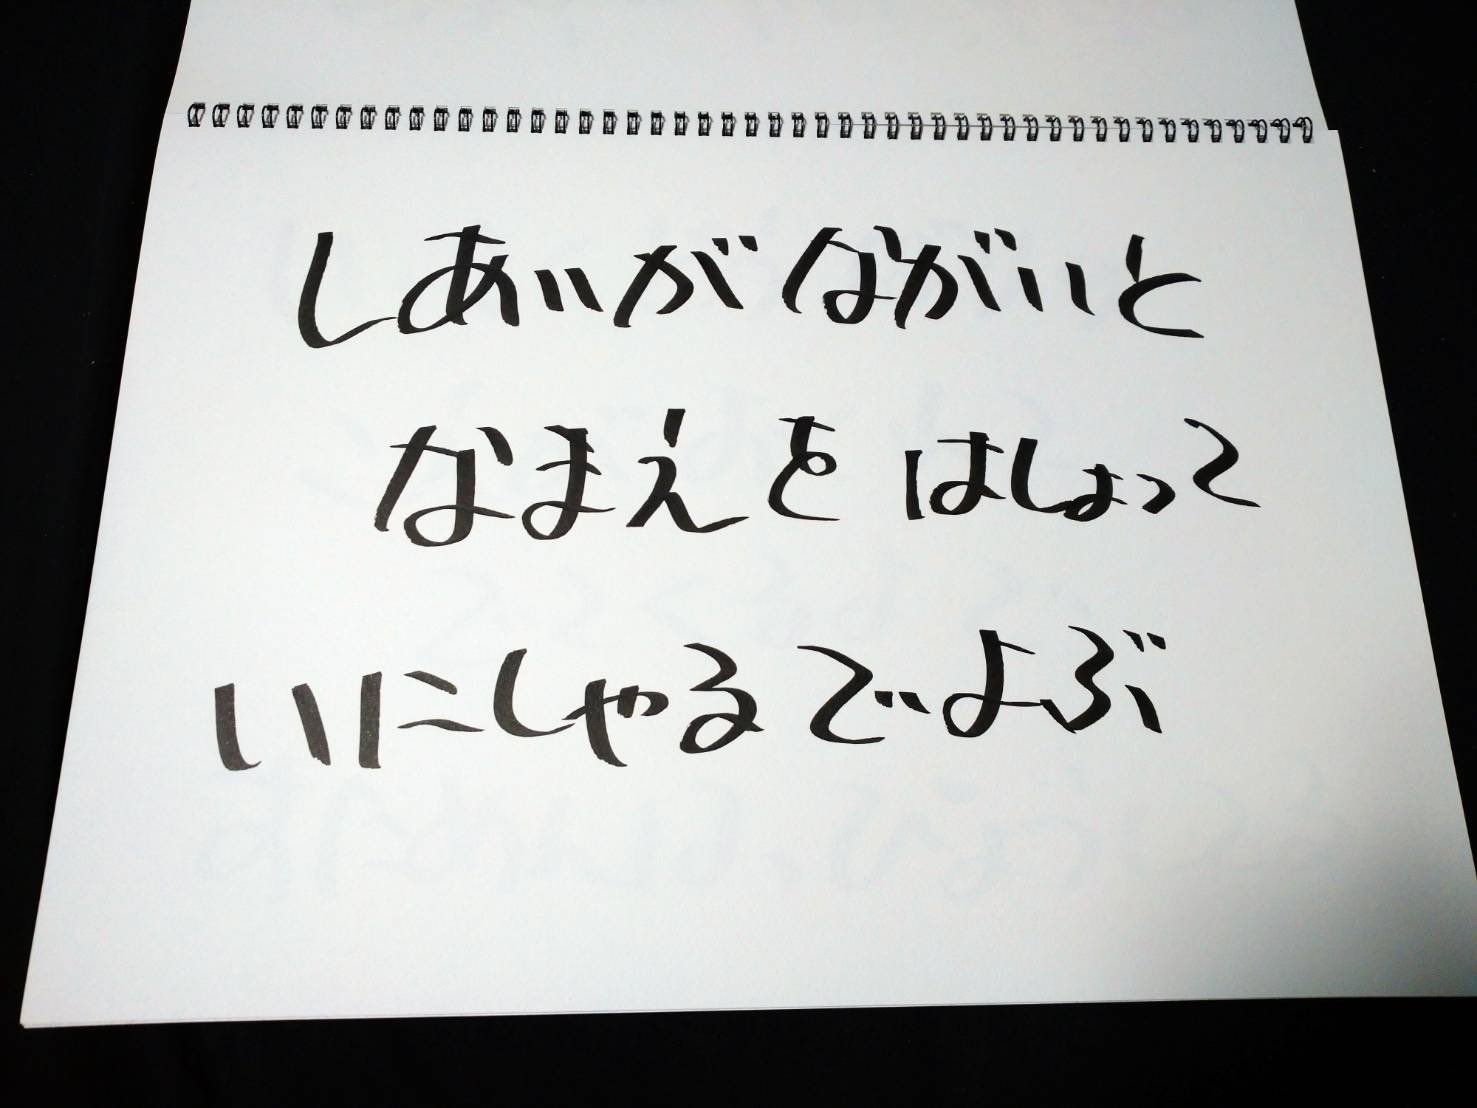 しあいが ながいと
なまえを はしょって
いにしゃる でよぶ